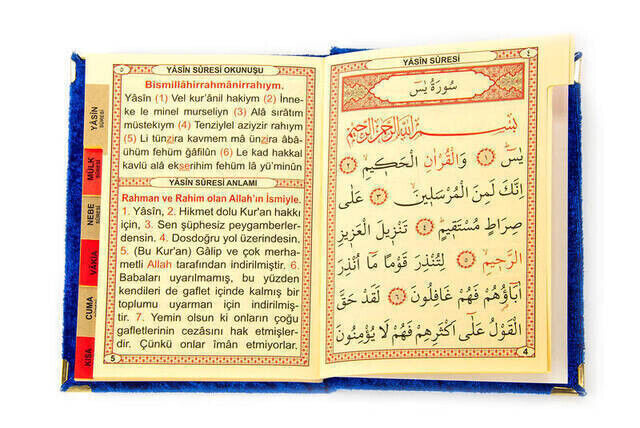 YÂSİN SÛRESİ
٤
سُورَةُ يٰسٓ
بِسْمِ اللّٰهِ الرَّحْمٰنِ الرَّحٖيمِ
يٰسٓ ﴿١﴾ وَالْقُرْاٰنِ الْحَكٖيمِ ﴿٢﴾
اِنَّكَ لَمِنَ الْمُرْسَلٖينَ ﴿٣﴾ عَلٰى
صِرَاطٍ مُسْتَقٖيمٍ ﴿٤﴾ تَنْزٖيلَ الْعَزٖيزِ
الرَّحٖيمِ ﴿٥﴾ لِتُنْذِرَ قَوْمًا مَٓا اُنْذِرَ
اٰبَٓاؤُهُمْ فَهُمْ غَافِلُونَ ﴿٦﴾ لَقَدْ حَقَّ
الْقَوْلُ عَلٰٓى اَكْثَرِهِمْ فَهُمْ لَا يُؤْمِنُونَ
4
٥
YÂSİN SÛRESİ OKUNUŞU
Bismillâhirrahmânirrahıym.
Yâsîn (1) Vel kur'ânil hakiym (2) İnne-
ke le minel murseliyn (3) Alâ sırâtım
müstekıym (4) Tenziylel aziyzir rahıym
(5) Li tünzira kavmem mâ ünzira âbâ-
ühüm fehüm ğâfilûn (6) Le kad hakkal
kavlü alâ ekserihim fehüm lâ yü'minûn
YÂSİN SÛRESİ ANLAMI
Rahman ve Rahim olan Allah'ın İsmiyle.
1. Yâsîn, 2. Hikmet dolu Kur'an hakkı
için, 3. Sen şüphesiz peygamberler-
densin. 4. Dosdoğru yol üzerindesin.
5. (Bu Kur'an) Gâlip ve çok merha-
metli Allah tarafından indirilmiştir. 6.
Babaları uyarılmamış, bu yüzden
kendileri de gaflet içinde kalmış bir
toplumu uyarman için indirilmiş-
tir. 7. Yemin olsun ki onların çoğu
gafletlerinin cezasını hak etmişler-
dir. Çünkü onlar îman etmiyorlar.
5
YÂSİN
SÛRESİ
MÜLK
SÛRESİ
NEBE
SÛRESİ
VÂKIA
CUMA
KISA